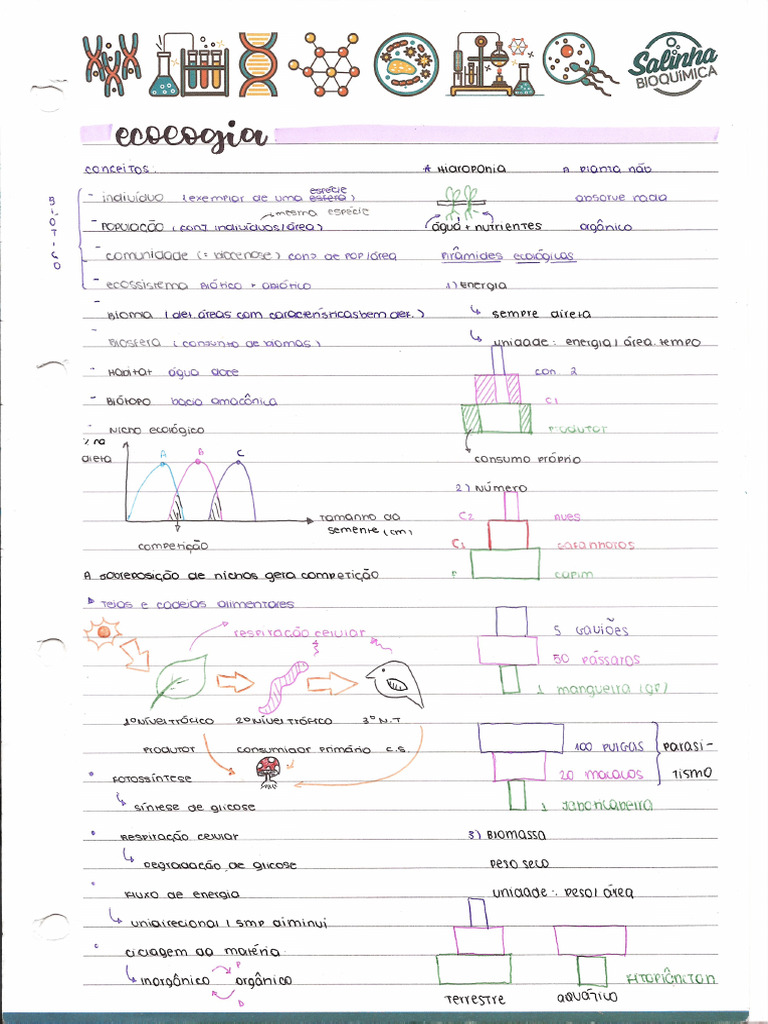 Salinha
BIOQUÍMICA
ecologia
CONCEITOS:
BIÓTICO
- indivíduo (exemplar de uma esfera)
espécie
- POPULAÇÃO (conj indivíduos/área)
mesma espécie
- comunidade (= biocenose) conj de pop/área
- ecossistema BIÓTICO + ABIÓTICO
- BIOMA (det. áreas com características bem def.)
- Biosfera (conjunto de biomas)
- Habitat água doce
- BIÓTOPO bacia amazônica
- NICHO ecológico
% na dieta
A B C
tamanho da semente (cm)
competição
A sobreposição de nichos gera competição
Teias e cadeias alimentares
respiração celular
1º NÍVEL TRÓFICO 2º NÍVEL TRÓFICO 3º N.T
PRODUTOR consumidor primário C.S.
• FOTOSSÍNTESE
síntese de glicose
• RESPIRAÇÃO celular
Degradação de glicose
• Fluxo de energia
unidirecional / smp diminui
• ciclagem da matéria
inorgânico orgânico
P
D
* HIDROPONIA A planta não
absorve nada
água + nutrientes orgânico
PIRÂMIDES ecológicas
1) energia
sempre direta
unidade: energia/área.tempo
con. 2
C1
PRODUTOR
consumo próprio
2) NÚMERO
C2 aves
C1 gafanhotos
P capim
5 gaviões
50 pássaros
1 mangueira (GP)
100 pulgas
20 macacos
parasitismo
1 jaboticabeira
3) BIOMASSA
peso seco
unidade: peso/área
FITOPLÂNCTON
terrestre aquático